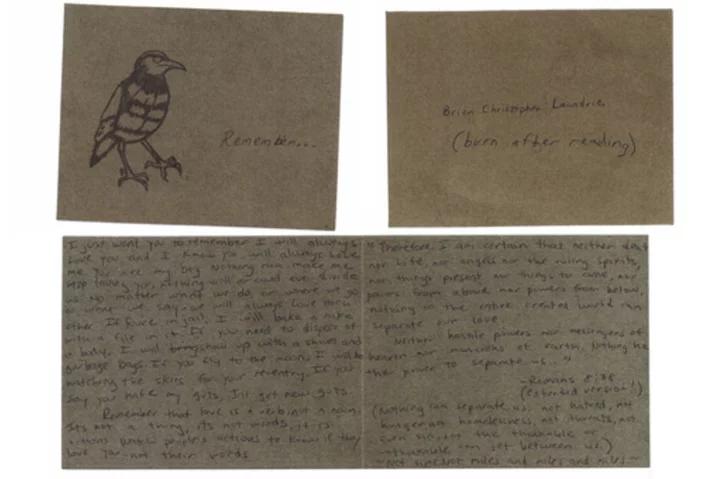 Remember...
Brian Christopher Laundrie
(burn after reading)
I just want you to remember I will always
love you and I know you will always love
me. You are my boy. Nothing can make me
stop loving you, nothing will or could ever divide
us no matter what we do, or where we go
or what we say - we will always love each
other. If you're in jail, I will bake a cake
with a file in it. If you need to dispose of
a body, I will show up with a shovel and
garbage bags. If you fly to the moon, I will be
watching the skies for your re-entry. If you
say you hate my guts, I'll get new guts.
Remember that love is a verb not a noun.
It's not a thing, it's not words, it is
actions. Watch people's actions to know if they
love you - not their words.
"Therefore, I am certain that neither death
nor life, nor angels nor the ruling spirits,
nor things present nor things to come, nor
powers from above nor powers from below,
nothing in the entire created world can
separate our love.
Neither hostile powers nor messengers of
heaven nor monarchs of earth. Nothing has
the power to separate us..."
-Romans 8:38
(extended version!)
(Nothing can separate us: not hatred, not
hunger, not homelessness, not threats, not
even sin, not the thinkable or
unthinkable can get between us.)
Not time. Not miles and miles and miles